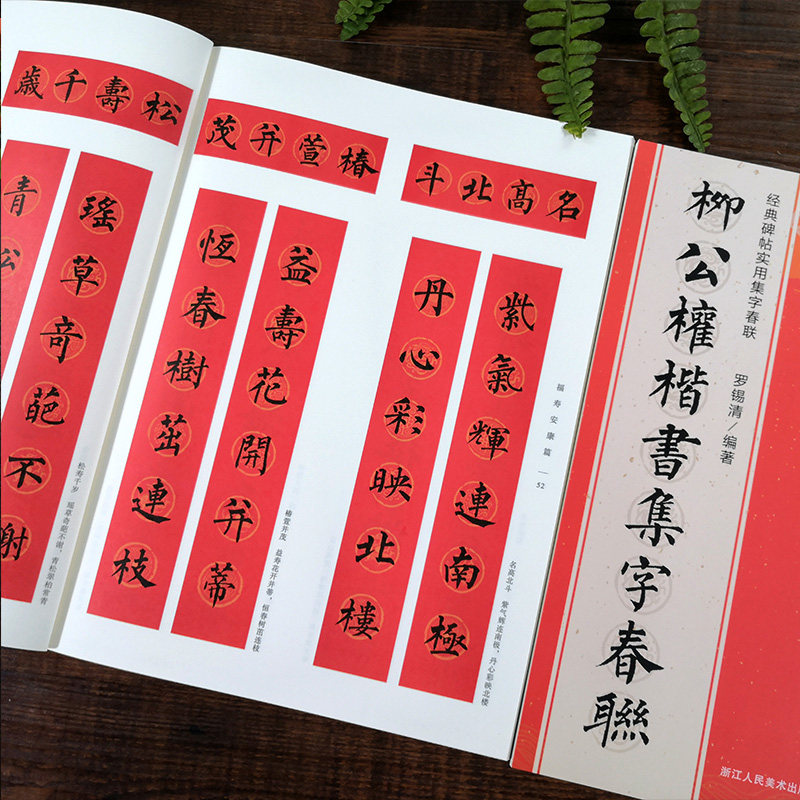 松壽千歳
瑤草奇葩不謝
青
松寿千岁 瑶草奇葩不谢,青松翠柏常青
椿萱并茂
益壽花開并蒂
恆春樹茁連枝
椿萱并茂 益寿花开并蒂,恒春树茁连枝
名髙北斗
紫氣輝連南極
丹心彩映北樓
名高北斗 紫气辉连南极,丹心彩映北楼
福寿安康篇 — 52
经典碑帖实用集字春联
柳公權楷書集字春聯
罗锡清/编著
浙江人民美术出